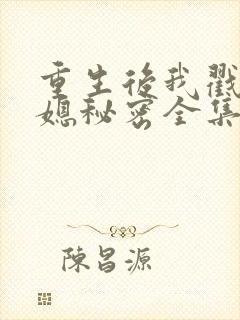 重生后我戳
媳秘密全集
陳昌源